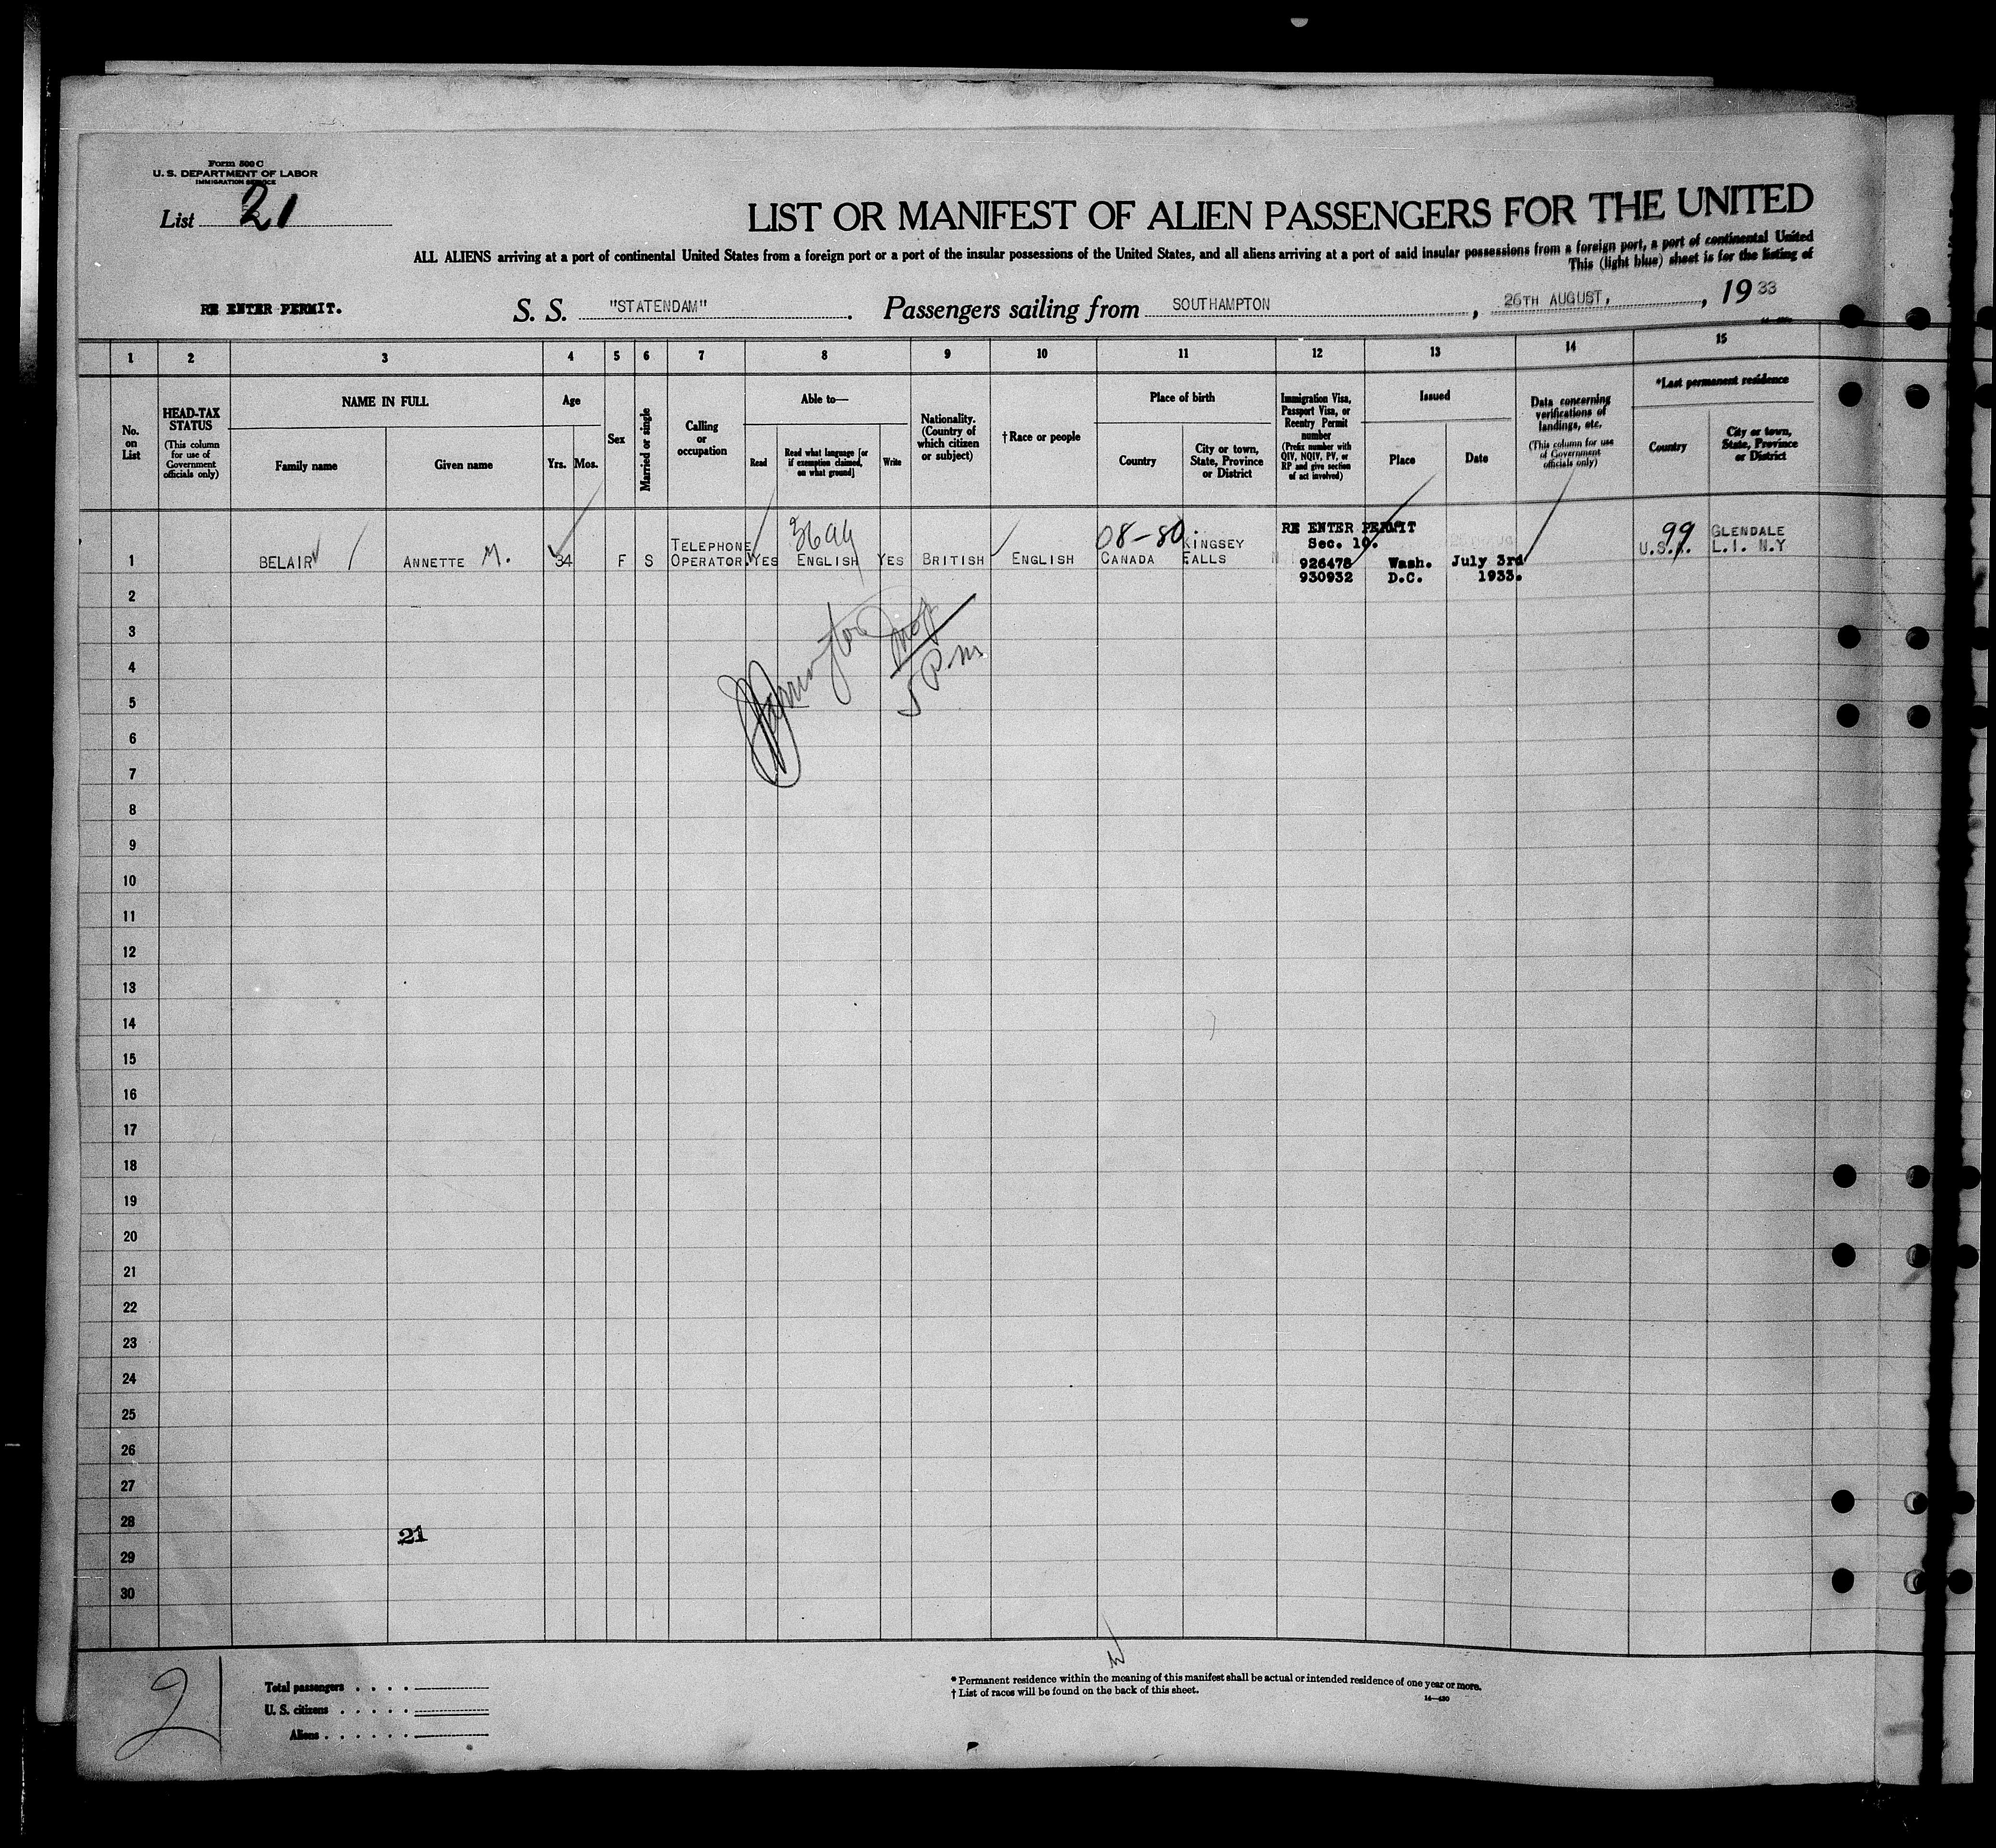 Form 500 C
U. S. DEPARTMENT OF LABOR
IMMIGRATION SERVICE
List 21
LIST OR MANIFEST OF ALIEN PASSENGERS FOR THE UNITED
ALL ALIENS arriving at a port of continental United States from a foreign port or a port of the insular possessions of the United States, and all aliens arriving at a port of said insular possessions from a foreign port, a port of continental United
This (light blue) sheet is for the listing of
RE ENTER PERMIT.
S. S. "STATENDAM" . Passengers sailing from SOUTHAMPTON , 26TH AUGUST, , 1933
1 2 3 4 5 6 7 8 9 10 11 12 13 14 15
No. on List
HEAD-TAX STATUS
(This column for use of Government officials only)
NAME IN FULL
Family name
Given name
Age
Yrs.
Mos.
Sex
Married or single
Calling or occupation
Able to—
Read
Read what language [or if exemption claimed, on what ground]
Write
Nationality. (Country of which citizen or subject)
† Race or people
Place of birth
Country
City or town, State, Province or District
Immigration Visa, Passport Visa, or Reentry Permit number
(Prefix number with QIV, NQIV, PV, or RP and give section of act involved)
Issued
Place
Date
Data concerning verifications of landings, etc.
(This column for use of Government officials only)
*Last permanent residence
Country
City or town, State, Province or District
1
BELAIR
ANNETTE M.
34
F
S
TELEPHONE
OPERATOR.
YES
ENGLISH
YES
BRITISH
ENGLISH
08-80
CANADA
KINGSEY
FALLS
RE ENTER PERMIT
Sec. 10.
926478
930932
Wash.
D.C.
July 3rd
1933.
99
U.S.A.
GLENDALE
L.I. N.Y
2
3
4
5
5 P.M
6
7
8
9
10
11
12
13
14
15
16
17
18
19
20
21
22
23
24
25
26
27
28
21
29
30
21
Total passengers . . . .
U. S. citizens . . . . .
Aliens . . . . . .
* Permanent residence within the meaning of this manifest shall be actual or intended residence of one year or more.
† List of races will be found on the back of this sheet.
14—430